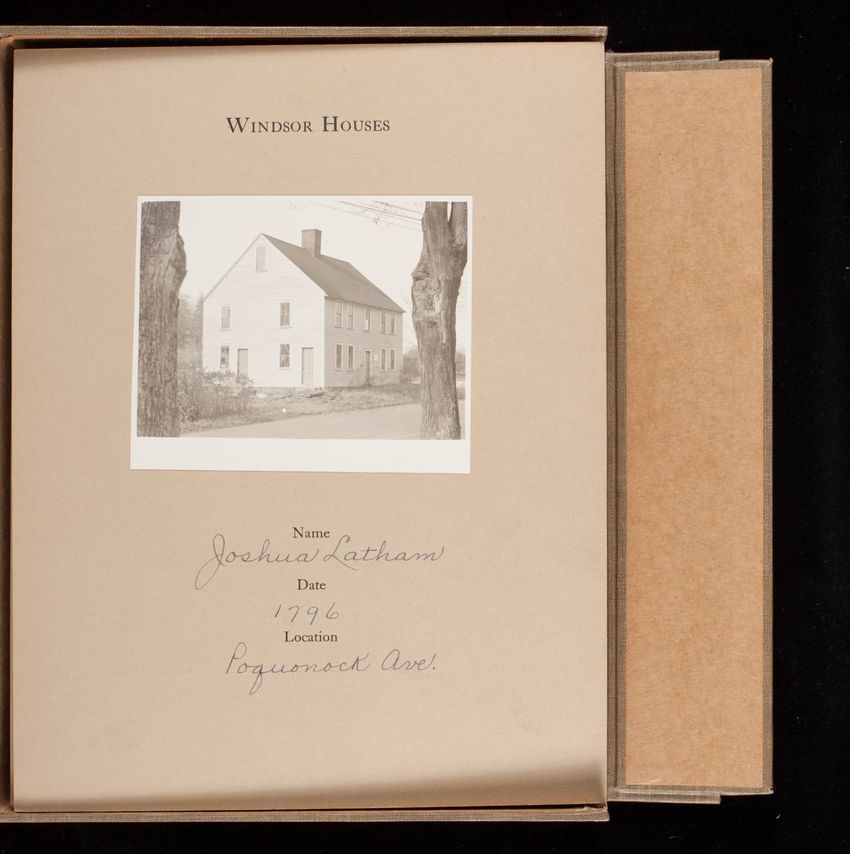 Windsor Houses
Name
Joshua Latham
Date
1796
Location
Poquonock Ave.